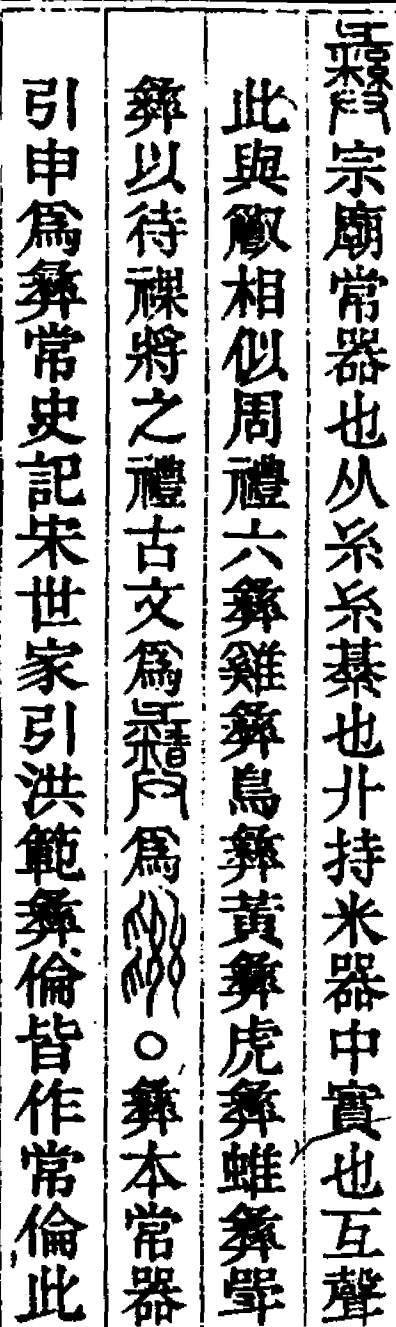 彝宗廟常器也从糸糸綦也廾持米器中實也互聲
此與相似周禮六彝雞彝鳥彝黃彝虎彝蜼彝斝
彝以待祼將之禮古文爲爲○彝本常器
引申爲彝常史記宋世家引洪範彝倫皆作常倫此